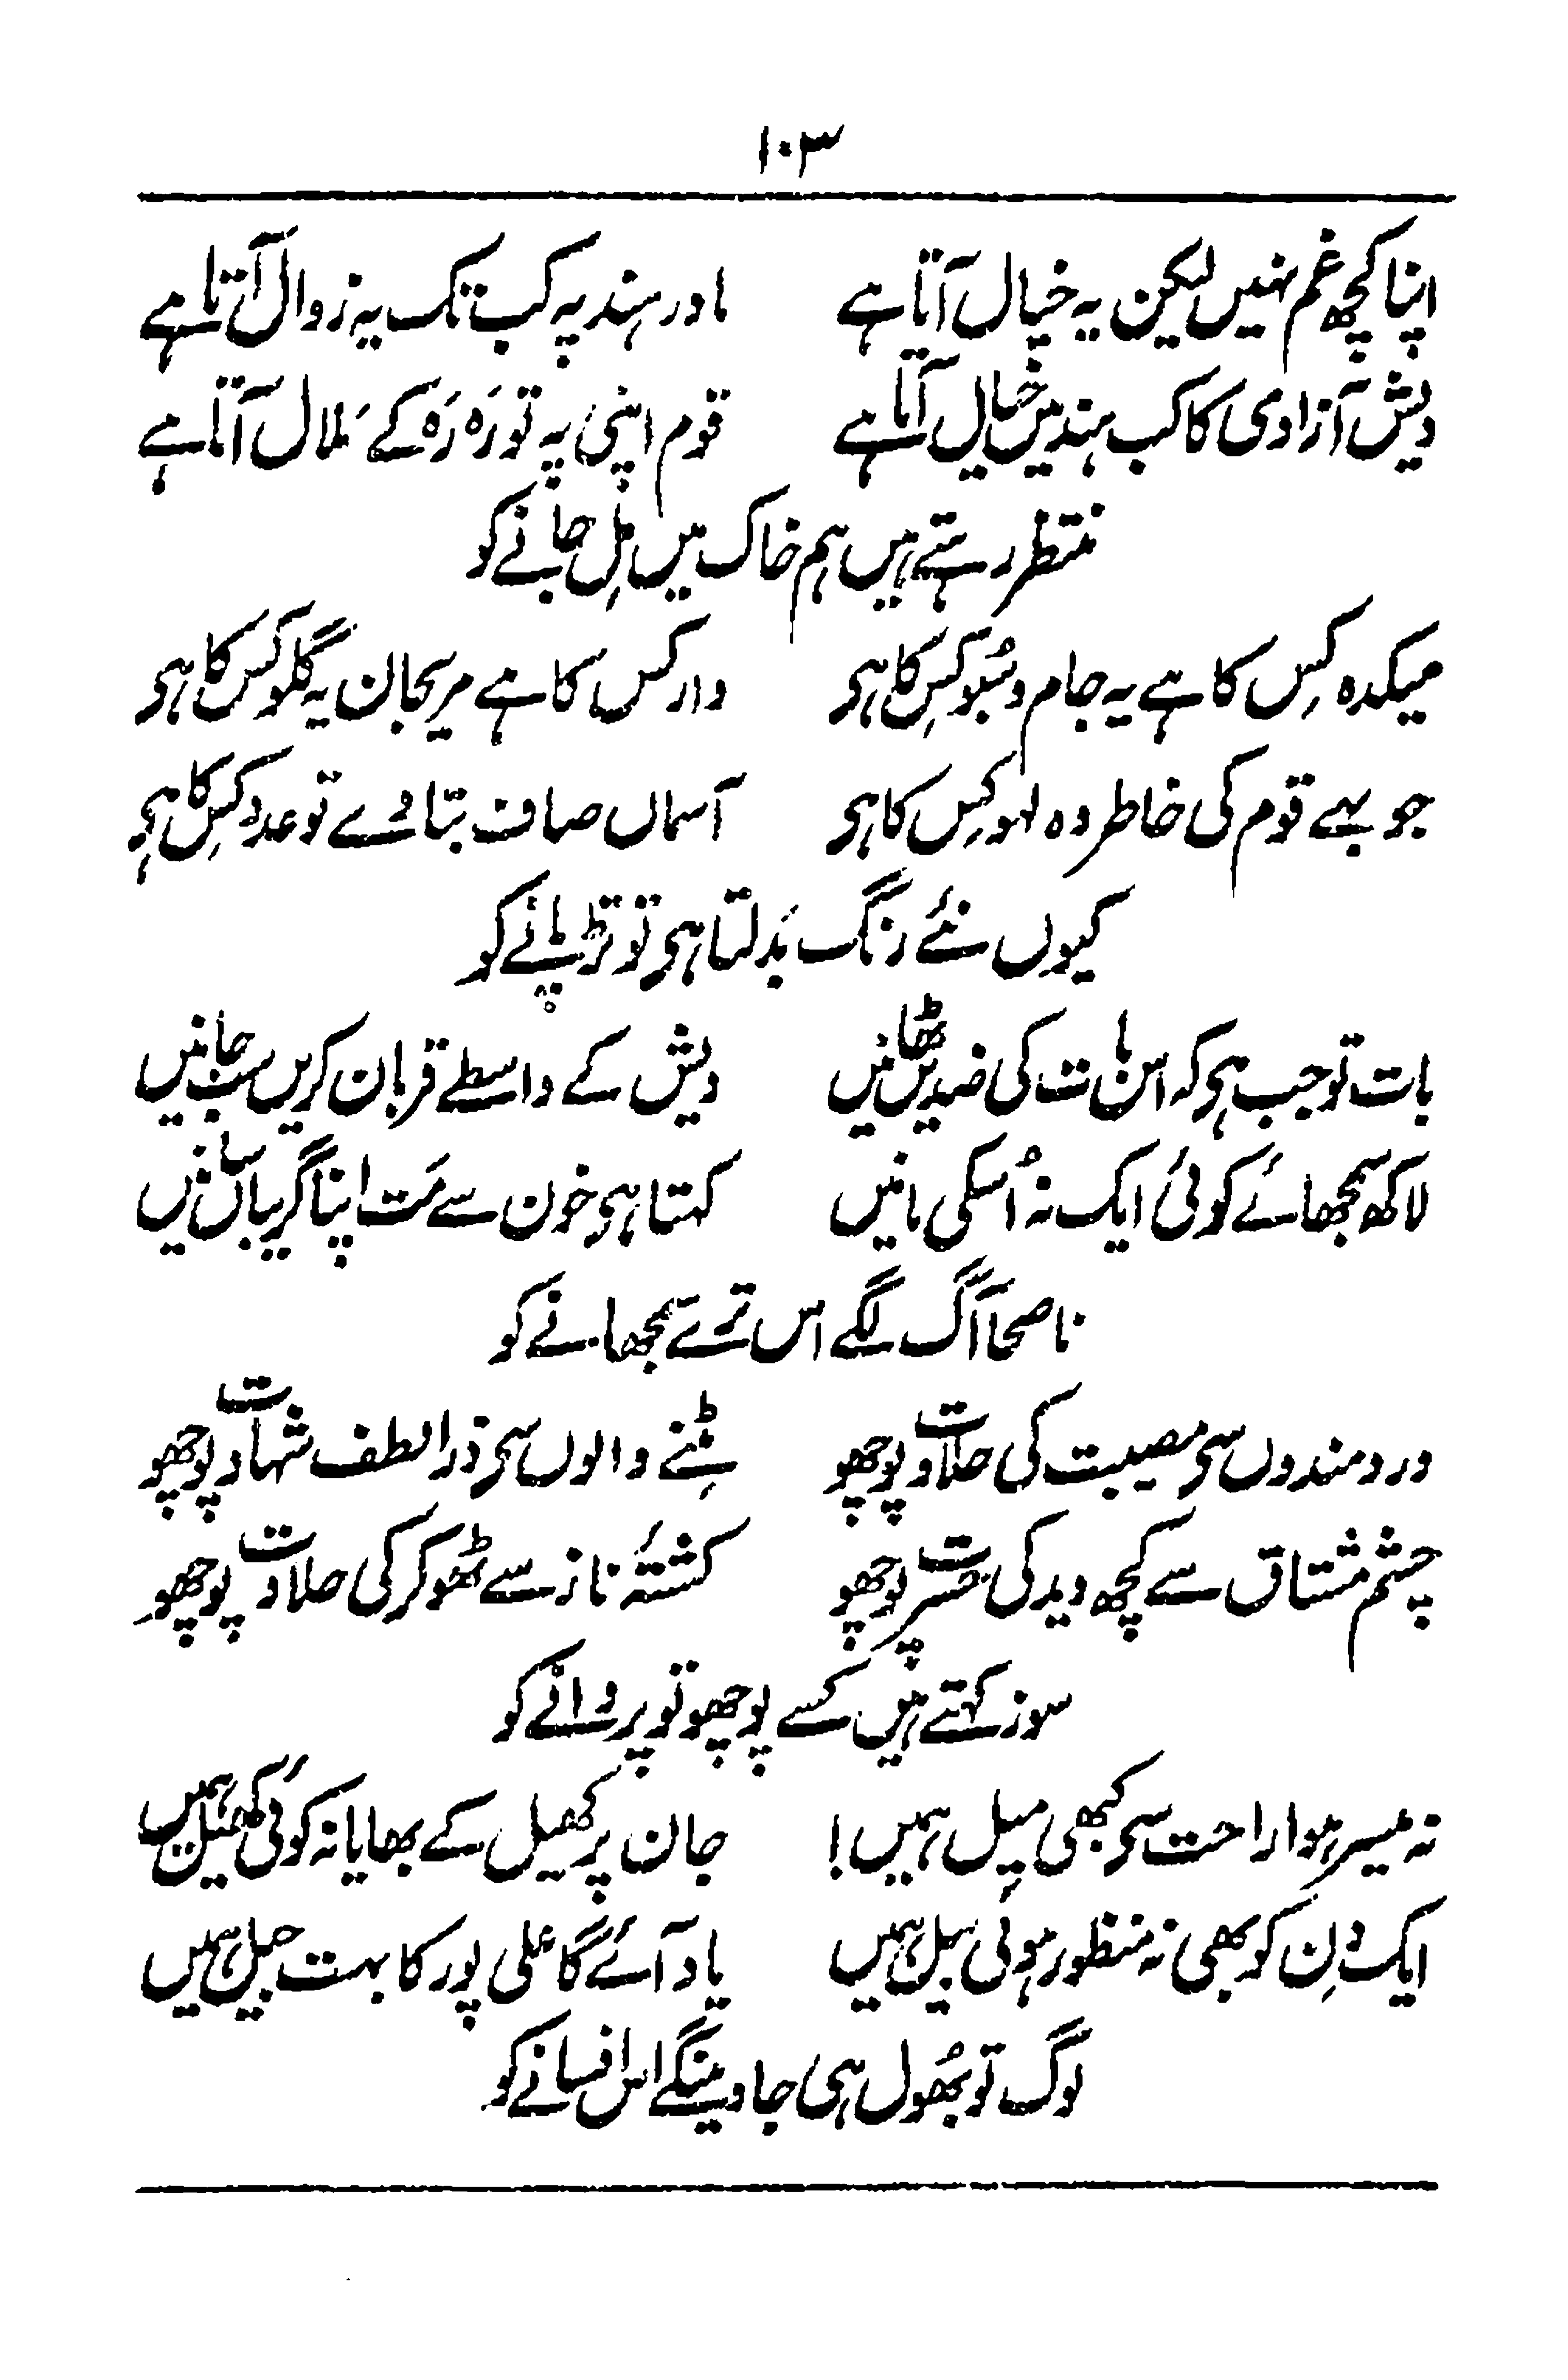 ۱۰۳
اپنا کچھ غم نہیں لیکن یہ خیال آتا ہے مادر ہند پہ کب تک یہ زوال آتا ہے
دیش آزادی کا کب ہند میں خیال آتا ہے قوم اپنی پہ تو رَہ رَہ کے مَلال آتا ہے
منتظر رہتے ہیں ہم خاک میں مِل جانے کو
میکدہ کِس کا ہے یہ جام و سُبُو کِس کا ہی وار کس کا ہے مریجان یہ گلُو کس کا ہی
جو بہے قوم کی خاطر وہ لہو کِس کا ہی آسماں صاف بتا دے تو عدو کِس کا ہی
کیوں نئے رنگ بَدلتا ہی تو تڑپانے کو
بات تو جب ہی کہ اس بات کی ضدیں ٹھانیں دیش کے واسطے قربان کریں سب جانیں
لاکھ سمجھائے کوئی ایک نہ اُسکی مانیں کہتا ہی خون سے مَت اپنا گریباں سانیں
ناصحا آگ لگے اس ترے سمجھانے کو
دردمندوں سی مصیبت کی حلاوت پوچھو مِٹنے والوں سی ذرا لطف شہادت پوچھو
چشم مشتاق سے کچھ دید کی حسرت پوچھو کشتۂ ناز سے ٹھوکر کی حلاوت پوچھو
سوز کہتے ہیں کسے پوچھو تو پروانے کو
نہ میسر ہوا راحت سی کبھی میل ہمیں! جان پر کھیل کے بھایا نہ کوئی کھیل ہمیں
ایک دِن کو بھی نہ منظور ہوئی بیل ہمیں یاد آئے گا علی پور کا بہت جیل ہمیں
لوگ تو بھُول ہی جاوینگے اس افسانے کو